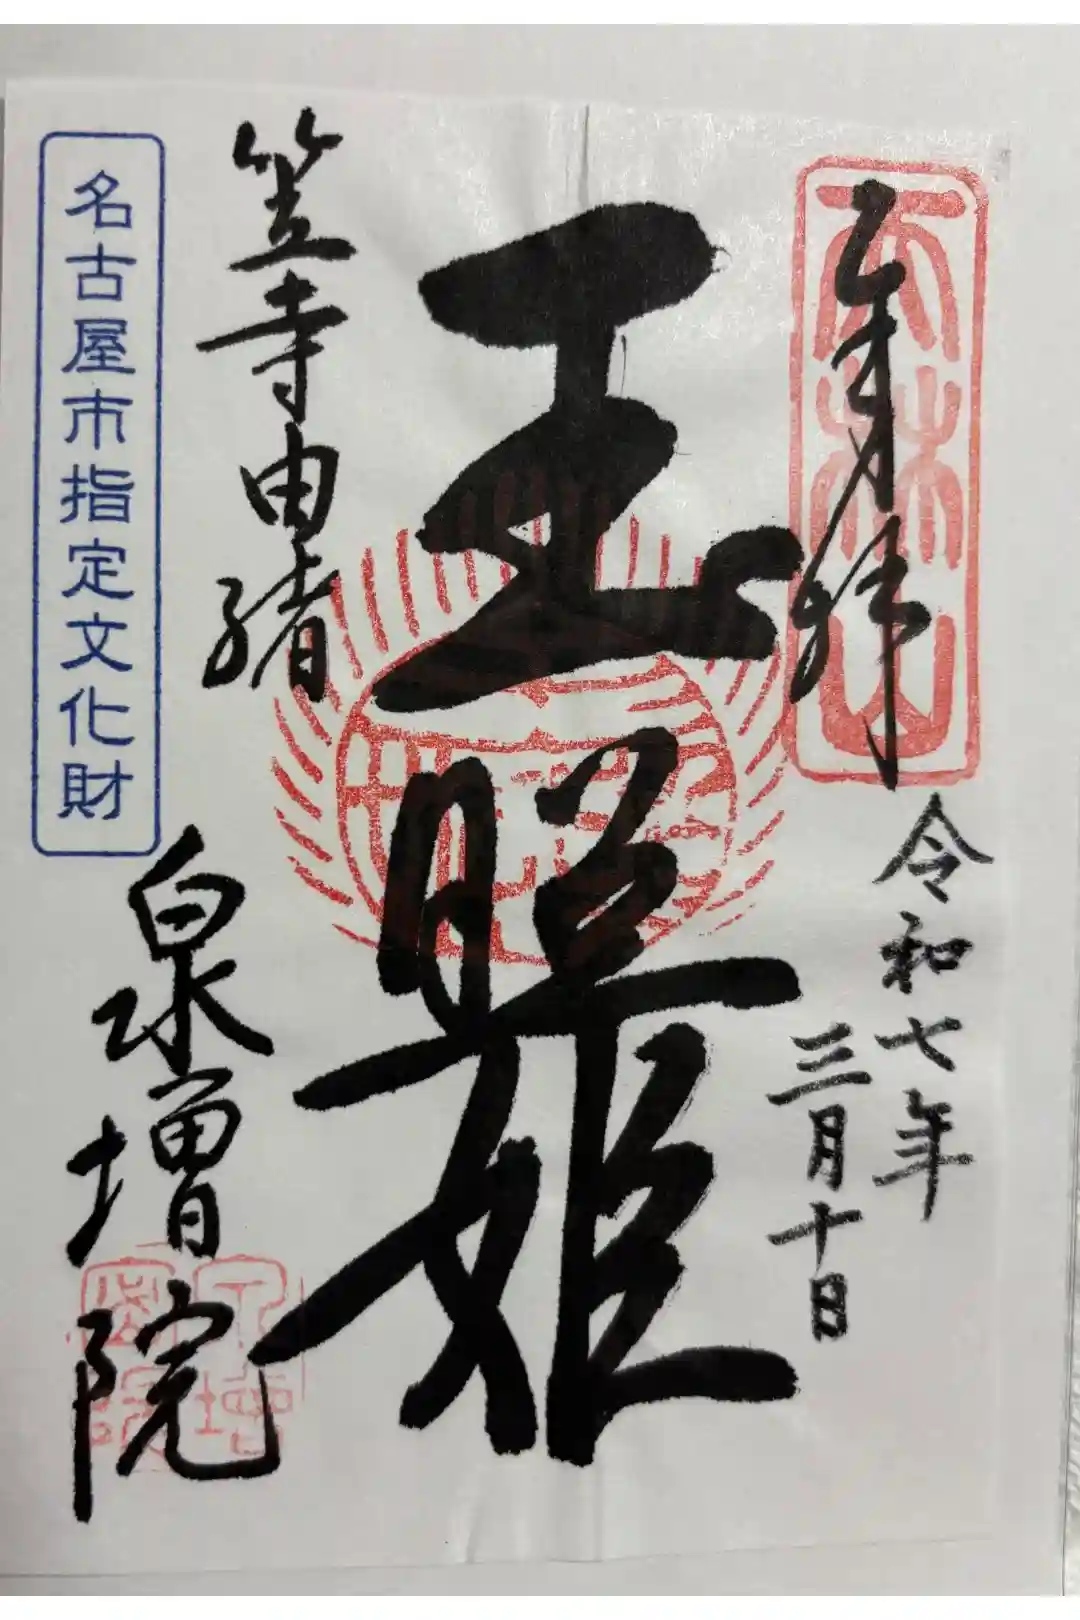 天林山
奉拝
令和七年
三月十日
玉照姫
笠寺由緒
名古屋市指定文化財
泉増院